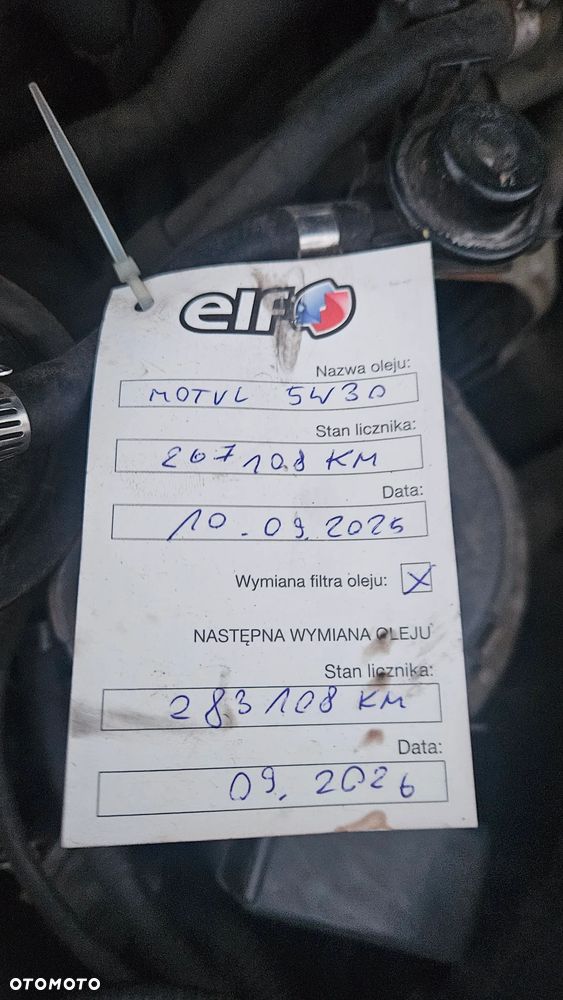 elf
Nazwa oleju:
MOTUL 5W30
Stan licznika:
267 108 KM
Data:
10.09.2025
Wymiana filtra oleju: X
NASTĘPNA WYMIANA OLEJU
Stan licznika:
283 108 KM
Data:
09.2026
OTOMOTO